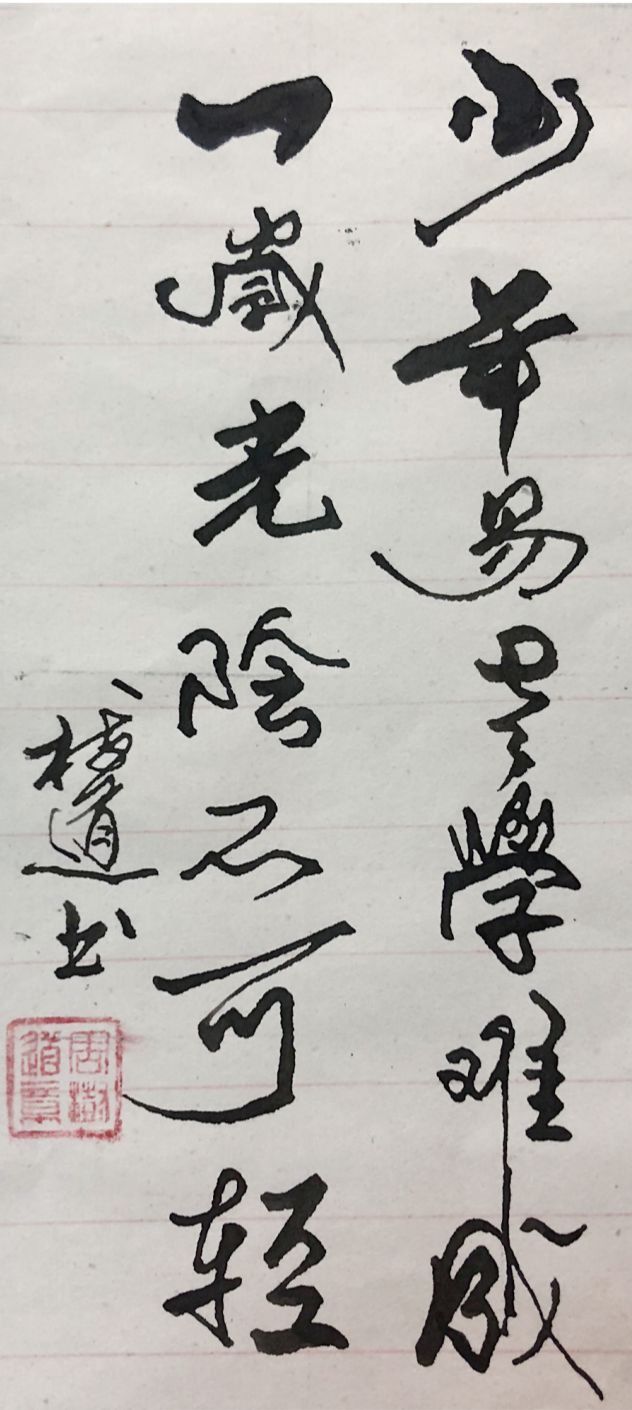 少年易老學难成
一歲光陰不可轻
树道书
周樹
道章